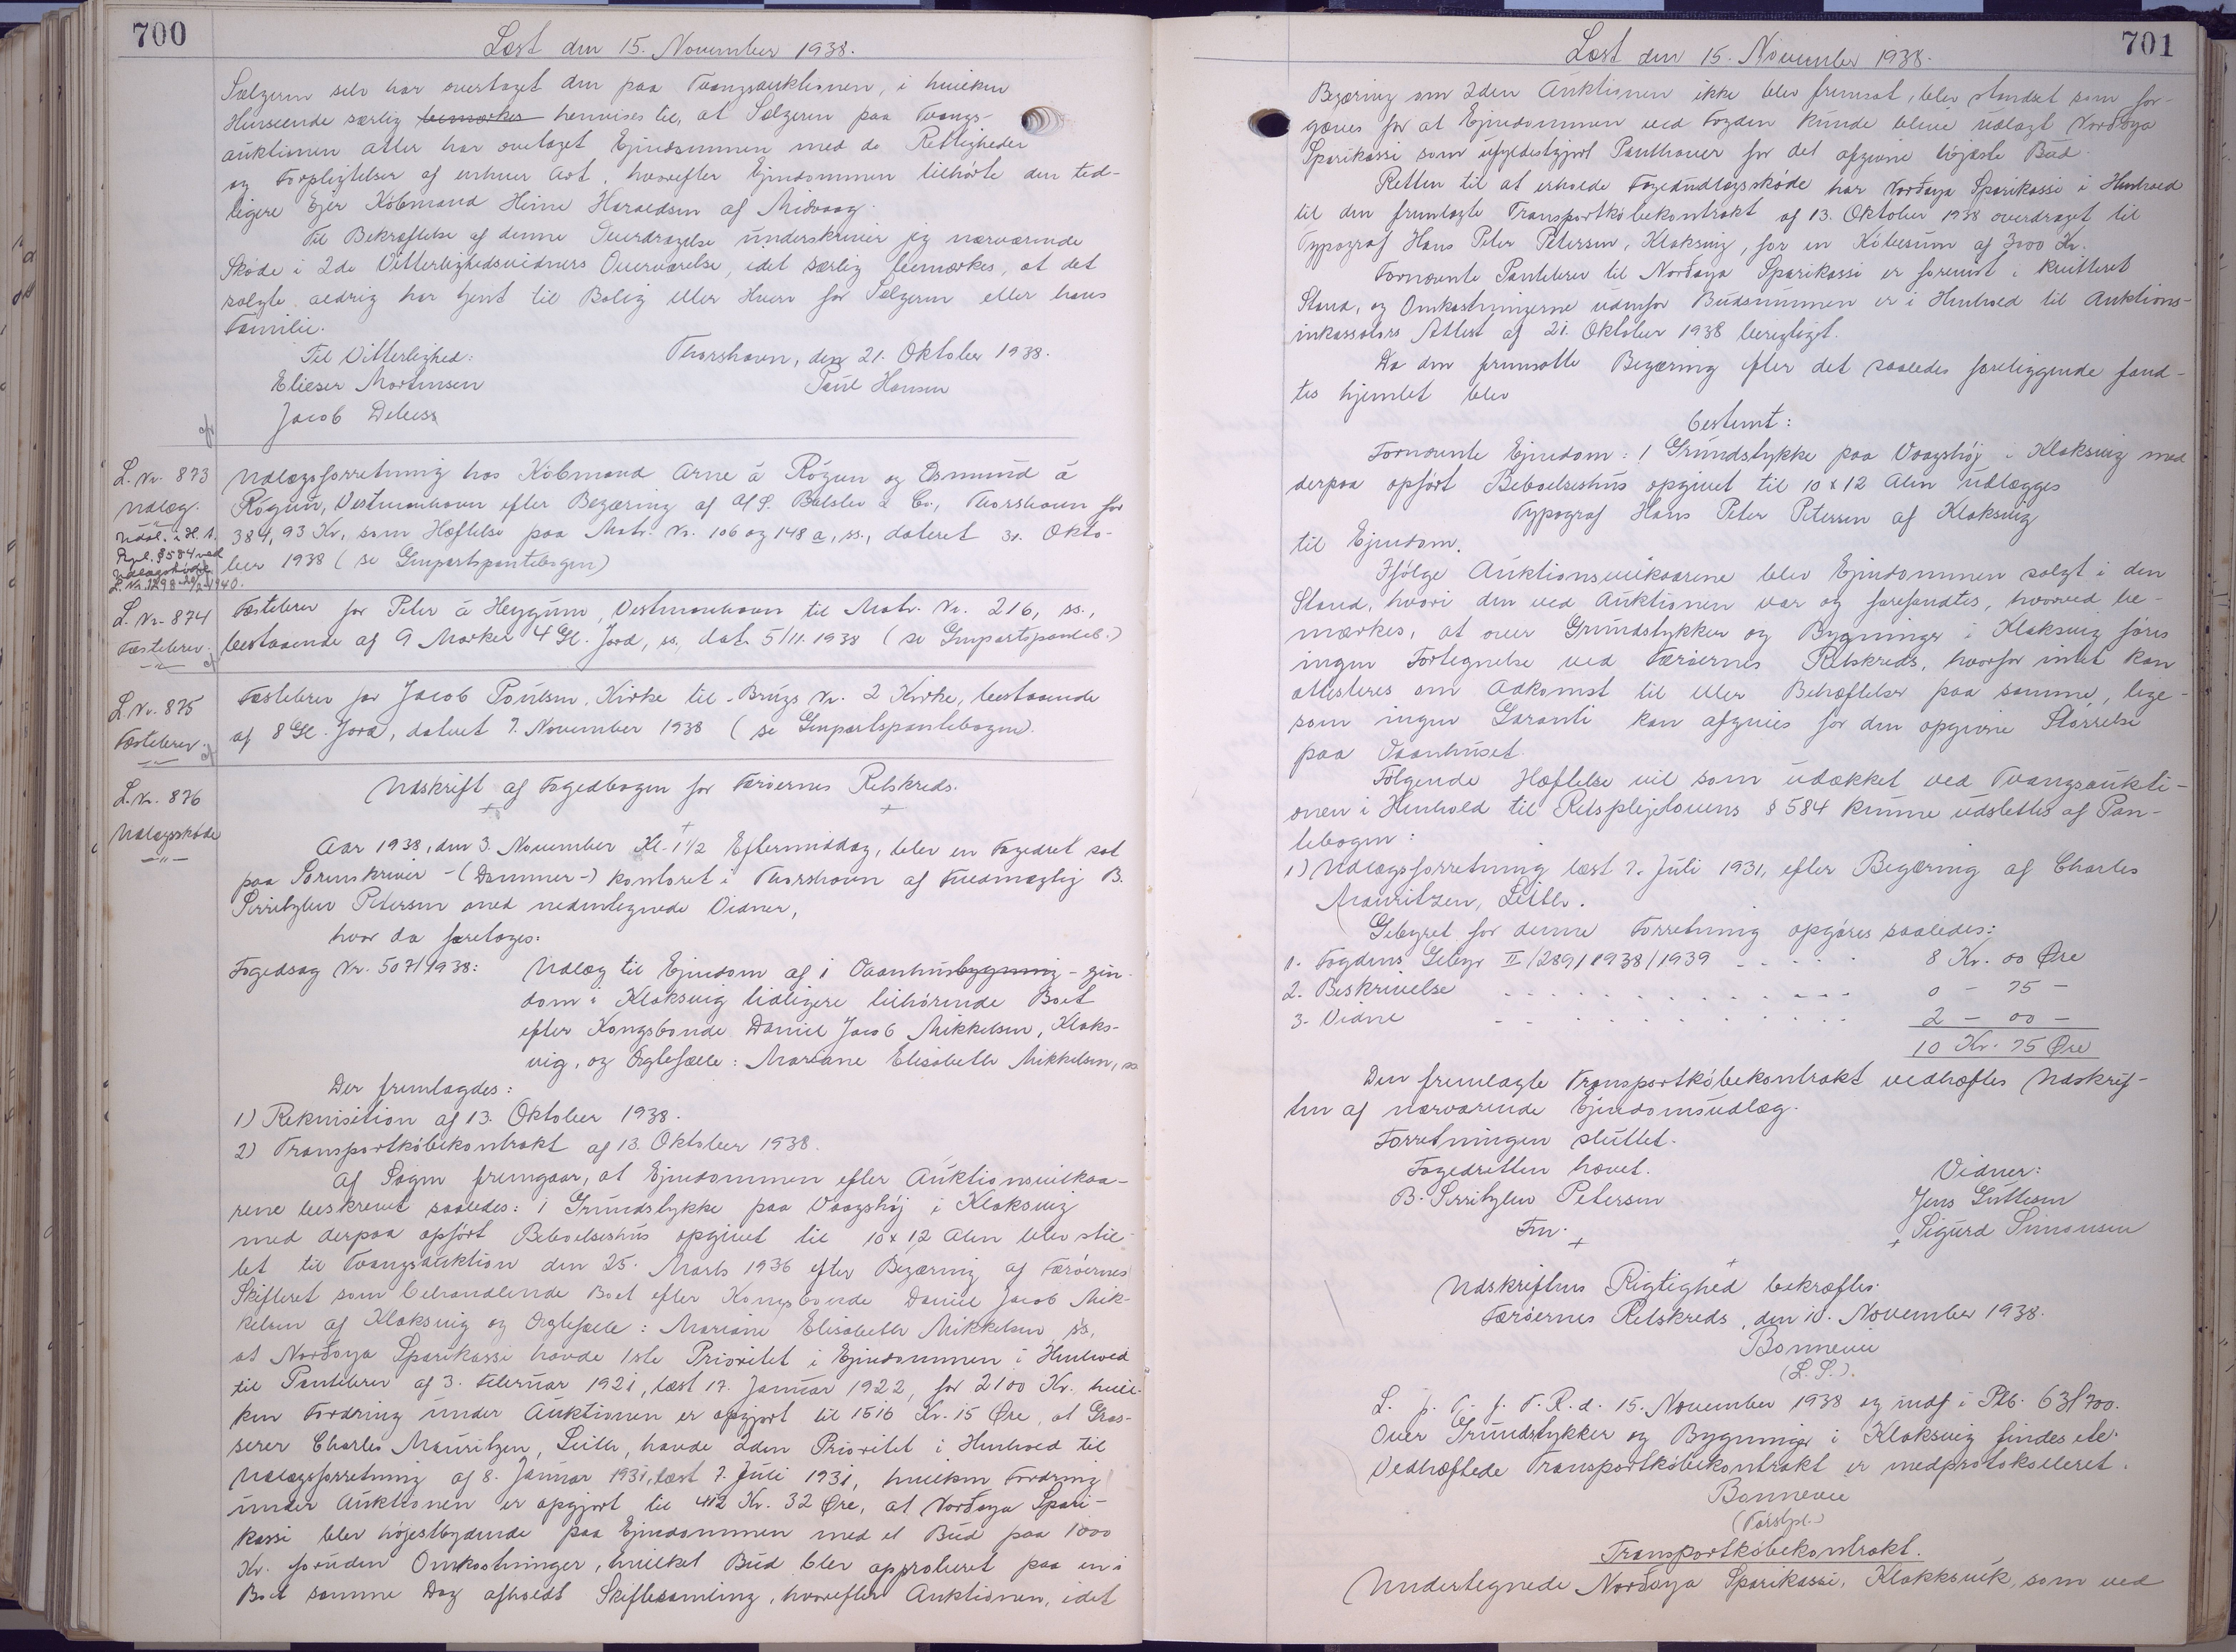 700
Læst den 15. November 1938.
Sælgeren selv har overtaget den paa Tvangsauktionen, i hvilken
Henseende særlig bemærkes henvises til, at Sælgeren paa Tvangs-
auktionen atter har overtaget Ejendommen med de Rettigheder
og Forpligtelser af enhver Art, hvorefter Ejendommen tilhørte den tid-
ligere Ejer Købmand Heine Haraldsen af Midvaag.
Til Bekræftelse af denne Overdragelse underskriver jeg nærværende
Skøde i 2de Vitterlighedsvidners Overværelse, idet særlig bemærkes, at det
solgte aldrig har tjent til Bolig eller Hjem for Sælgeren eller hans
Familie.
Til Vitterlighed:
Thorshavn, den 21. Oktober 1938.
Elieser Mortensen
Poul Hansen
Jacob Debess
L. Nr. 873
Udlæg.
Udsl. i H. t.
Rpl. § 584 ved
Udlægsskøde
L. Nr. 1298 - 1940.
Udlægsforretning hos Købmand Arne á Røgum og Osmund á
Røgum, Vestmanhavn efter Begæring af Alf. S. Balslev & Co., Thorshavn for
384,93 Kr, som Hæftelse paa Matr. Nr. 106 og 148 a, ss., dateret 31. Okto-
ber 1938 (se Genpartspantebogen)
L. Nr. 874
Fæstebrev.
Fæstebrev for Peter á Heygum, Vestmanhavn til Matr. Nr. 216, ss.,
bestaaende af 9 Marker 4 Gl. Jord, ss., dat. 5/11. 1938 (se Genpartspanteb.)
L. Nr. 875
Fæstebrev.
Fæstebrev for Jacob Poulsen, Kirke til Brugs Nr. 2 Kirke, bestaaende
af 8 Gl. Jord, dateret 7. November 1938 (se Genpartspantebogen).
L. Nr. 876
Udlægsskøde
Udskrift af Fogedbogen for Færøernes Retskreds.
Aar 1938, den 3. November Kl. 1 1/2 Eftermiddag, blev en Fogedret sat
paa Sorenskriver-(Dommer-) kontoret i Thorshavn af Fuldmægtig B.
Serritzlew Petersen med nedentegnede Vidner,
hvor da foretoges:
Fogedsag Nr. 507/1938: Udlæg til Ejendom af 1 Vaanhusbygning - ejen-
dom i Klaksvig tidligere tilhørende Boet
efter Kongsbonde Daniel Jacob Mikkelsen, Klaks-
vig, og Ægtefælle: Mariane Elisabeth Mikkelsen, ss
Der fremlagdes:
1) Rekvisition af 13. Oktober 1938.
2) Transportkøbekontrakt af 13. Oktober 1938.
Af Sagen fremgaar, at Ejendommen efter Auktionsvilkaa-
rene beskrevet saaledes: 1 Grundstykke paa Vaagshøj i Klaksvig
med derpaa opført Beboelseshus opgivet til 10 x 12 Alen blev stil-
let til Tvangsauktion den 25. Marts 1936 efter Begæring af Færøernes
Skifteret som behandlende Boet efter Kongsbonde Daniel Jacob Mik-
kelsen af Klaksvig og Ægtefælle: Mariane Elisabeth Mikkelsen, ss,
at Norðoya Sparikassi havde 1ste Prioritet i Ejendommen i Henhold
til Pantebrev af 3. Februar 1921, læst 17. Januar 1922, for 2100 Kr. hvil-
ken Fordring under Auktionen er opgjort til 1516 Kr. 15 Øre, at Gros-
serer Charles Mauritzen, Leith, havde 2den Prioritet i Henhold til
Udlægsforretning af 8. Januar 1931, læst 7. Juli 1931, hvilken Fordring
under Auktionen er opgjort til 412 Kr. 32 Øre, at Norðoya Spari-
kassi blev højestbydende paa Ejendommen med et Bud paa 1000
Kr. foruden Omkostninger, hvilket Bud blev approberet paa en i
Boet samme Dag afholdt Skiftesamling, hvorefter Auktionen, idet
701
Læst den 15. November 1938.
Begæring om 2den Auktionen ikke blev fremsat, blev standset som for-
gæves for at Ejendommen ved Fogden kunde blive udlagt Norðoya
Sparikassi som ufyldestgjort Panthaver for det afgivne højeste Bud.
Retten til at erholde Fogedudlægsskøde har Norðoya Sparikassi i Henhold
til den fremlagte Transportkøbekontrakt af 13. Oktober 1938 overdraget til
Typograf Hans Peter Petersen, Klaksvig, for en Købesum af 3000 Kr.
Fornævnte Pantebrev til Norðoya Sparikassi er forevist i kvitteret
Stand, og Omkostningerne udenfor Budsummen er i Henhold til Auktions-
inkassators Attest af 21. Oktober 1938 berigtiget.
Da den fremsatte Begæring efter det saaledes foreliggende fand-
tes hjemlet blev
bestemt:
Fornævnte Ejendom: 1 Grundstykke paa Vaagshøj i Klaksvig med
derpaa opført Beboelseshus opgivet til 10 x 12 Alen udlægges
Typograf Hans Peter Petersen af Klaksvig
til Ejendom.
Ifølge Auktionsvilkaarene blev Ejendommen solgt i den
Stand, hvori den ved Auktionen var og forefandtes, hvorved be-
mærkes, at over Grundstykker og Bygninger i Klaksvig føres
ingen Fortegnelse ved Færøernes Retskreds, hvorfor intet kan
attesteres om Adkomst til eller Behæftelser paa samme, lige-
som ingen Garanti kan afgives for den opgivne Størrelse
paa Vaanhuset.
Følgende Hæftelse vil som udækket ved Tvangsaukti-
onen i Henhold til Retsplejelovens § 584 kunne udslettes af Pan-
tebogen:
1) Udlægsforretning læst 7. Juli 1931, efter Begæring af Charles
Mauritzen, Leith.
Gebyret for denne Forretning opgøres saaledes:
1. Fogdens Gebyr II/289/1938/1939 - - - - - 8 Kr. 00 Øre
2. Beskrivelse - - - - - - - - 0 - 75 -
3. Vidne - - - - - - - - 2 - 00 -
10 Kr. 75 Øre
Den fremlagte Transportkøbekontrakt vedhæftes Udskrif-
ten af nærværende Ejendomsudlæg.
Forretningen sluttet.
Fogedretten hævet.
Vidner:
B. Serritzlew Petersen
Jens Guttesen
Fm.
Sigurd Simonsen
Udskriftens Rigtighed bekræftes.
Færøernes Retskreds, den 10. November 1938.
Bonnevie
(L. S.).
L. p. T. f. F. R. d. 15. November 1938 og indf i Ptb. 63 f 700.
Over Grundstykker og Bygninger i Klaksvig findes etc.
Vedhæftede Transportkøbekontrakt er medprotokolleret.
Bonnevie
(Forstpl.)
Transportkøbekontrakt.
Undertegnede Norðoya Sparikassi, Klakksvík, som ved